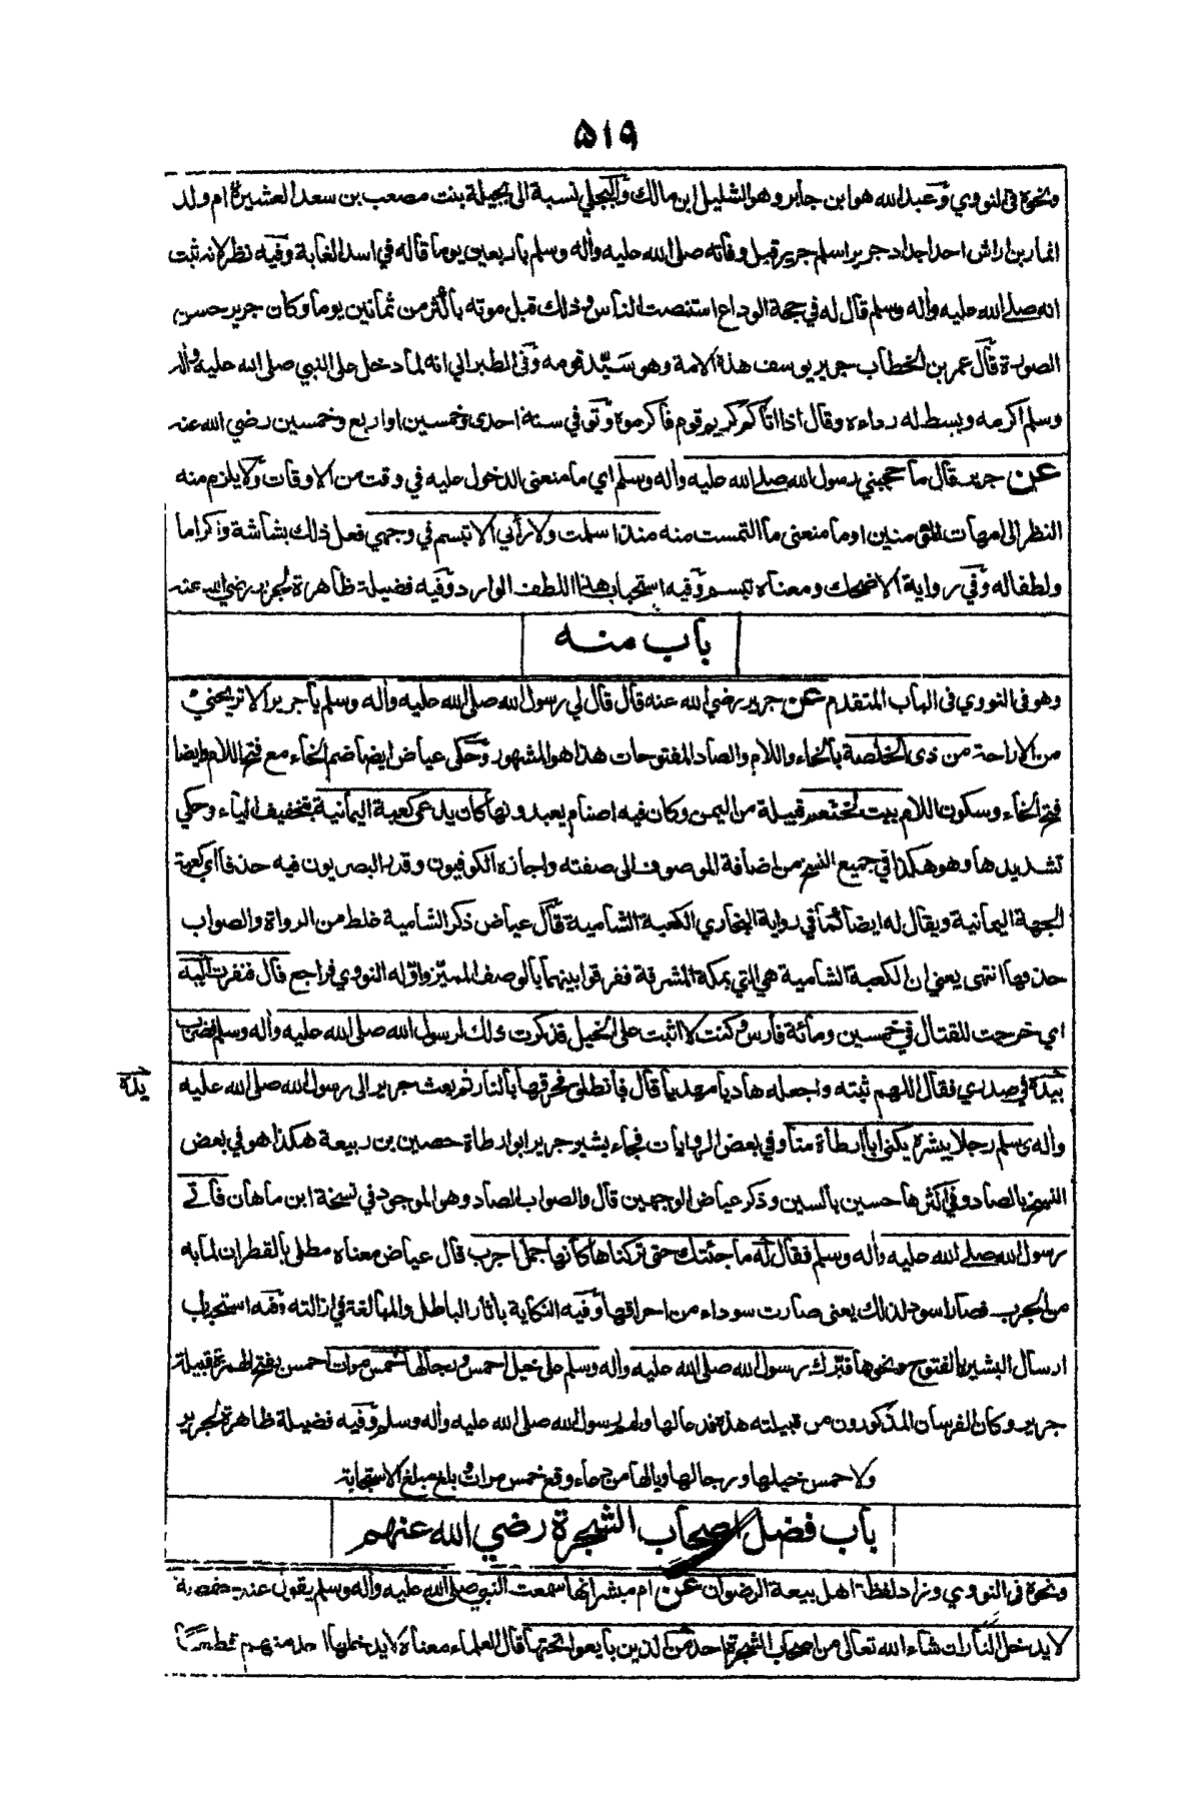 ٥١٩
ونحوه في النووي وعبد الله هو ابن جابر وهو الشليل ابن مالك والبجلي نسبة الى بجيلة بنت مصعب بن سعد العشيرة ام ولد
انمار بن اراش احد اجداد جرير اسلم جرير قبل وفاته صلى الله عليه وأله وسلم بأربعين يوما قاله في اسد الغابة وفيه نظر لانه ثبت
انه صلى الله عليه وأله وسلم قال له في حجة الوداع استنصت الناس وذلك قبل موته بأكثر من ثمانين يوما وكان جرير حسن
الصورة قال عمر بن الخطاب جرير يوسف هذه الامة وهو سيّد قومه وفى الطبراني انه لما دخل على النبي صلى الله عليه وأله
وسلم اكرمه وبسط له رداءه وقال اذا اتاكم كريم قوم فأكرموه وتوفي في سنة احدى وخمسين او اربع وخمسين رضي الله عنه
عن جرير قال ما حجبني رسول الله صلى الله عليه وأله وسلم اي ما منعنى الدخول عليه في وقت من الاوقات ولا يلزم منه
النظر الى امهات المؤمنين او ما منعنى ما التمست منه منذ اسلمت ولا رأني الا تبسم في وجهي فعل ذلك بشاشة واكراما
ولطفا له وفي رواية الا ضحك ومعناه تبسم وفيه استحباب هذا اللطف الوارد وفيه فضيلة ظاهرة لجرير رضي الله عنه
باب منه
وهو فى النووي فى الباب المتقدم عن جرير رضي الله عنه قال قال لي رسول الله صلى الله عليه وأله وسلم يا جرير الا تريحني
من الاراحة من ذى الخلصة بالخاء واللام والصاد المفتوحات هذا هو المشهور وحكى عياض ايضا ضم الخاء مع فتح اللام وايضا
فتح الخاء وسكون اللام بيت لخثعم قبيلة من اليمن وكان فيه اصنام يعبدونها كان يدعى كعبة اليمانية بتخفيف الياء وحكي
تشديدها وهو هكذا في جميع النسخ من اضافة الموصوف الى صفته واجازه الكوفيون وقدر البصريون فيه حذفا اي كعبة
الجهة اليمانية ويقال له ايضا كما في رواية البخاري الكعبة الشامية قال عياض ذكر الشامية غلط من الرواة والصواب
حذفها انتهى يعني ان الكعبة الشامية هي التي بمكة المشرفة ففرقوا بينهما بالوصف المميّز واوّله النووي فراجع قال فنفرت اليه
اي خرجت للقتال في خمسين ومائة فارس وكنت لا اثبت على الخيل فذكرت ذلك لرسول الله صلى الله عليه وأله وسلم فضرب
بيده في صدري فقال اللهم ثبته واجعله هاديا مهديا قال فانطلق فحرقها بالنار ثم بعث جرير الى رسول الله صلى الله عليه
يده
وأله وسلم رجلا يبشره يكنى ابا ارطأة منا وفي بعض الروايات فجاء بشير جرير ابو ارطاة حصين بن ربيعة هكذا هو في بعض
النسخ بالصاد وفي اكثرها حسين بالسين وذكر عياض الوجهين قال والصواب الصاد وهو الموجود في نسخة ابن ماهان فأتى
رسول الله صلى الله عليه وأله وسلم فقال له ما جئتك حتى تركناها كأنها جمل اجرب قال عياض معناه مطلى بالقطران لما به
من الجرب فصار اسود لذلك يعنى صارت سوداء من احراقها وفيه النكاية بأثار الباطل والمبالغة في ازالته وفيه استحباب
ارسال البشير بالفتوح ونحوها فبرّك رسول الله صلى الله عليه وأله وسلم على خيل احمس ورجالها خمس مرات احمس بفتح الهمزة قبيلة
جرير وكان الفرسان المذكورون من قبيلته هذه فدعا لها ولهم رسول الله صلى الله عليه وأله وسلم وفيه فضيلة ظاهرة لجرير
ولاحمس خيلها ورجالها ويالها من دعاء وقع خمس مرات بلغ مبلغ الاستجابة
باب فضل اصحاب الشجرة رضي الله عنهم
ونحوه فى النووي وزاد لفظة اهل بيعة الرضوان عن ام مبشر انها سمعت النبي صلى الله عليه وأله وسلم يقول عند حفصة
لا يدخل النار ان شاء الله تعالى من اصحاب الشجرة احد من الذين بايعوا تحتها قال العلماء معناه لا يدخلها احد منهم قطعًا